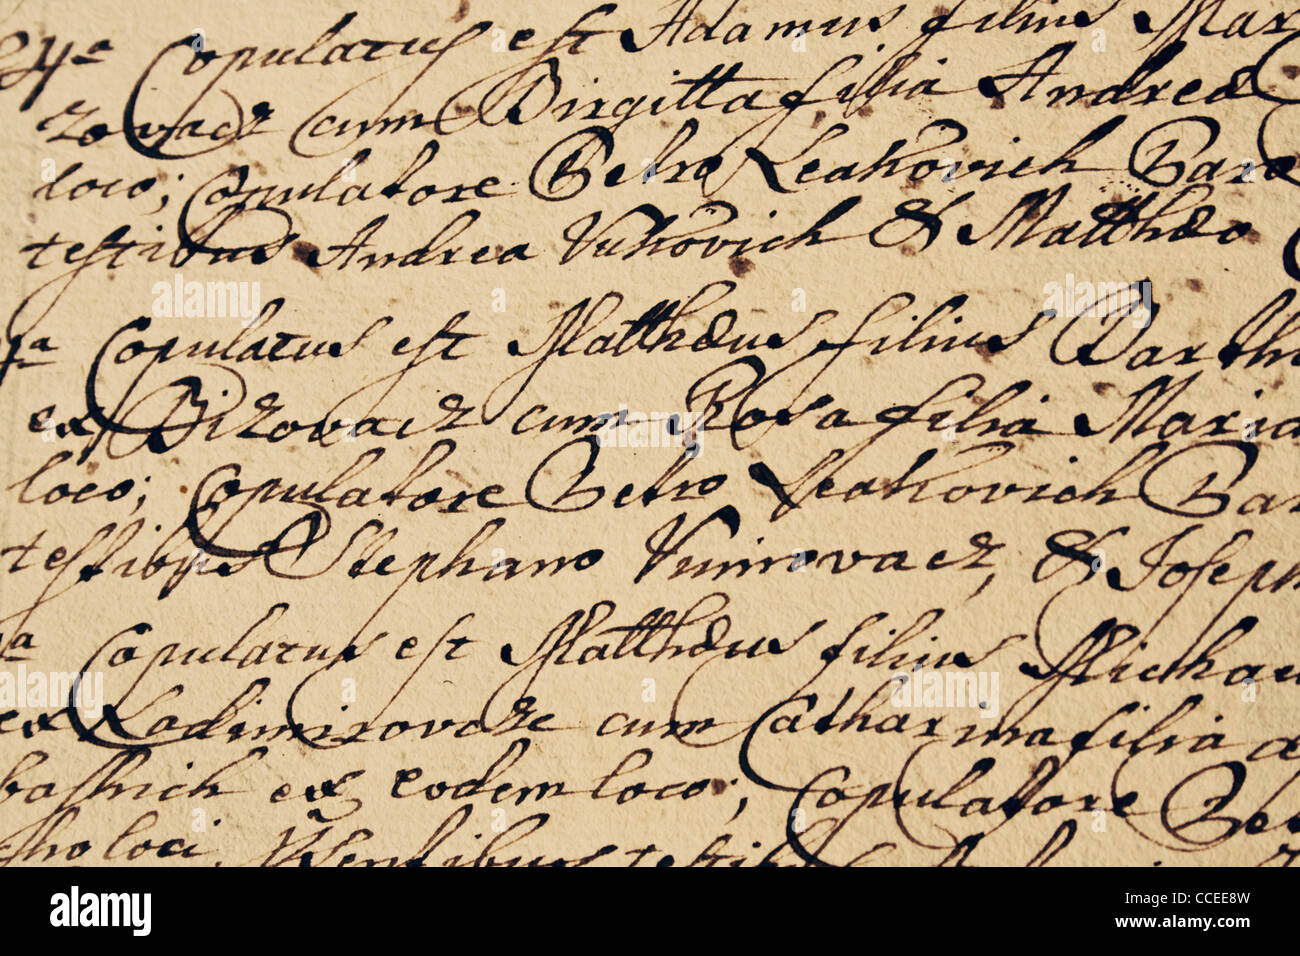 24ª Copulatus est Adamus filius Mar
zovacz cum Birgitta filia Andreæ
loco; Copulatore Petro Leakovich Paro
testibus Andrea Vukovich & Matthæo
ª Copulatus est Matthæus filius Barth
ex Bizovacz cum Rosa filia Maria
loco; Copulatore Petro Leakovich Par
testibus Stephano Vinirovacz, & Joseph
ª Copulatus est Matthæus filius Michae
ex Ladimirovacze cum Catharina filia
bashich ex eodem loco; Copulatore Pet
cho loci. Præsentibus testibus
alamy
Image ID: CCEE8W
www.alamy.com